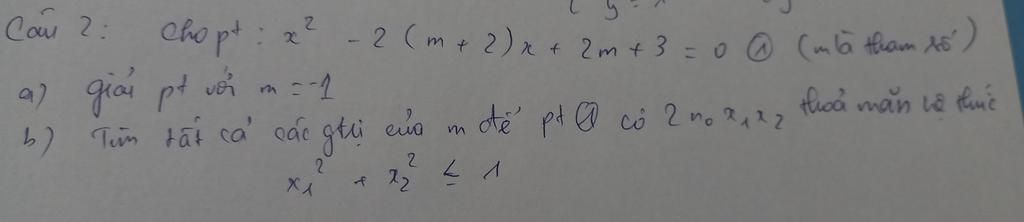 Câu 2: Cho pt: x² - 2(m+2)x + 2m + 3 = 0 ① (m là tham số)
a) giải pt với m = -1
b) Tìm tất cả các gtrị của m để pt ① có 2 n₀ x₁ x₂ thoả mãn hệ thức
x₁² + x₂² ≤ 1